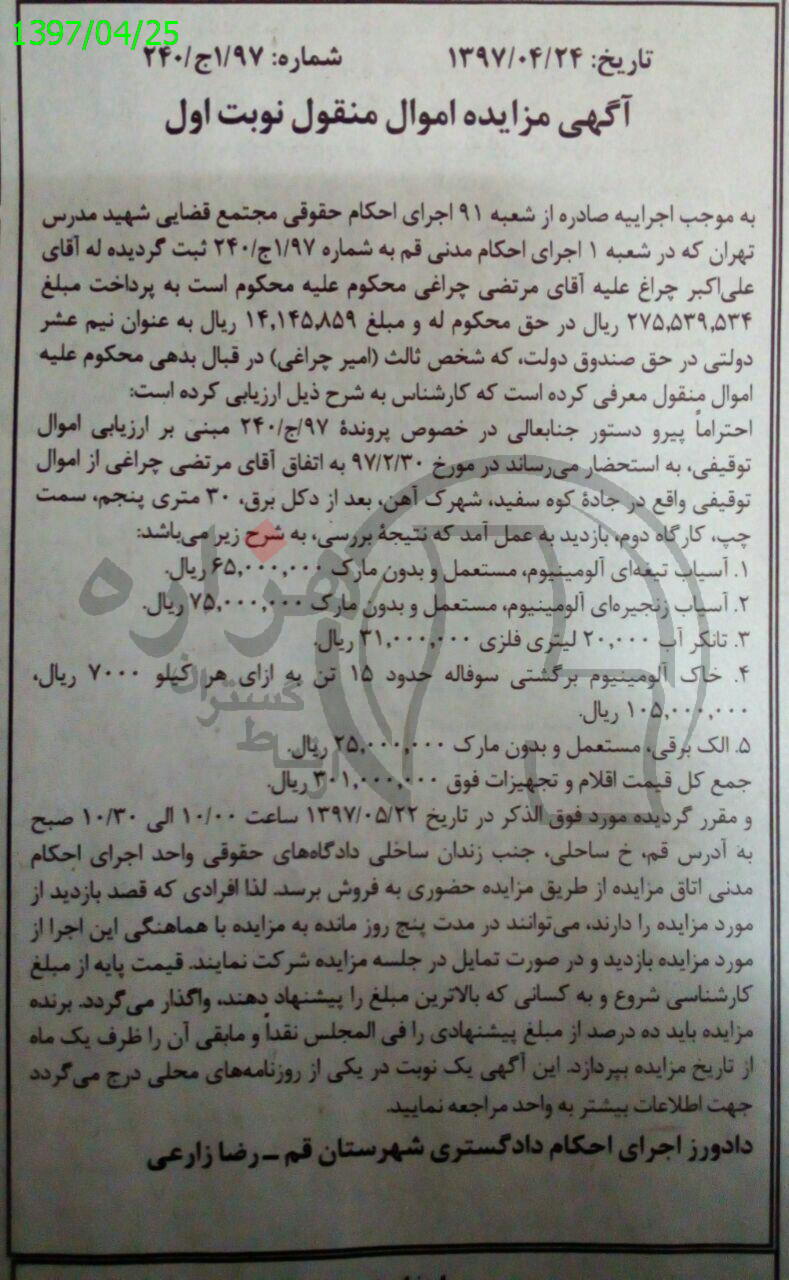 1397/04/25
تاریخ: ۱۳۹۷/۰۴/۲۴ شماره: ۱/۹۷ج/۲۴۰
آگهی مزایده اموال منقول نوبت اول
به موجب اجراییه صادره از شعبه ۹۱ اجرای احکام حقوقی مجتمع قضایی شهید مدرس
تهران که در شعبه ۱ اجرای احکام مدنی قم به شماره ۱/۹۷ج/۲۴۰ ثبت گردیده له آقای
علی‌اکبر چراغ علیه آقای مرتضی چراغی محکوم علیه محکوم است به پرداخت مبلغ
۲۷۵,۵۳۹,۵۳۴ ریال در حق محکوم له و مبلغ ۱۴,۱۴۵,۸۵۹ ریال به عنوان نیم عشر
دولتی در حق صندوق دولت، که شخص ثالث (امیر چراغی) در قبال بدهی محکوم علیه
اموال منقول معرفی کرده است که کارشناس به شرح ذیل ارزیابی کرده است:
احتراماً پیرو دستور جنابعالی در خصوص پروندهٔ ۹۷/ج/۲۴۰ مبنی بر ارزیابی اموال
توقیفی، به استحضار می‌رساند در مورخ ۹۷/۲/۳۰ به اتفاق آقای مرتضی چراغی از اموال
توقیفی واقع در جادهٔ کوه سفید، شهرک آهن، بعد از دکل برق، ۳۰ متری پنجم، سمت
چپ، کارگاه دوم، بازدید به عمل آمد که نتیجهٔ بررسی، به شرح زیر می‌باشد:
۱. آسیاب تیغه‌ای آلومینیوم، مستعمل و بدون مارک ۶۵,۰۰۰,۰۰۰ ریال.
۲. آسیاب زنجیره‌ای آلومینیوم، مستعمل و بدون مارک ۷۵,۰۰۰,۰۰۰ ریال.
۳. تانکر آب ۲۰,۰۰۰ لیتری فلزی ۳۱,۰۰۰,۰۰۰ ریال.
۴. خاک آلومینیوم برگشتی سوفاله حدود ۱۵ تن به ازای هر کیلو ۷۰۰۰ ریال،
۱۰۵,۰۰۰,۰۰۰ ریال.
۵. الک برقی، مستعمل و بدون مارک ۲۵,۰۰۰,۰۰۰ ریال.
جمع کل قیمت اقلام و تجهیزات فوق ۳۰۱,۰۰۰,۰۰۰ ریال.
و مقرر گردیده مورد فوق الذکر در تاریخ ۱۳۹۷/۰۵/۲۲ ساعت ۱۰/۰۰ الی ۱۰/۳۰ صبح
به آدرس قم، خ ساحلی، جنب زندان ساخلی دادگاه‌های حقوقی واحد اجرای احکام
مدنی اتاق مزایده از طریق مزایده حضوری به فروش برسد. لذا افرادی که قصد بازدید از
مورد مزایده را دارند، می‌توانند در مدت پنج روز مانده به مزایده با هماهنگی این اجرا از
مورد مزایده بازدید و در صورت تمایل در جلسه مزایده شرکت نمایند. قیمت پایه از مبلغ
کارشناسی شروع و به کسانی که بالاترین مبلغ را پیشنهاد دهند، واگذار می‌گردد. برنده
مزایده باید ده درصد از مبلغ پیشنهادی را فی المجلس نقداً و مابقی آن را ظرف یک ماه
از تاریخ مزایده بپردازد. این آگهی یک نوبت در یکی از روزنامه‌های محلی درج می‌گردد
جهت اطلاعات بیشتر به واحد مراجعه نمایید.
دادورز اجرای احکام دادگستری شهرستان قم ــ رضا زارعی
هزاره
گستران
ارتباط